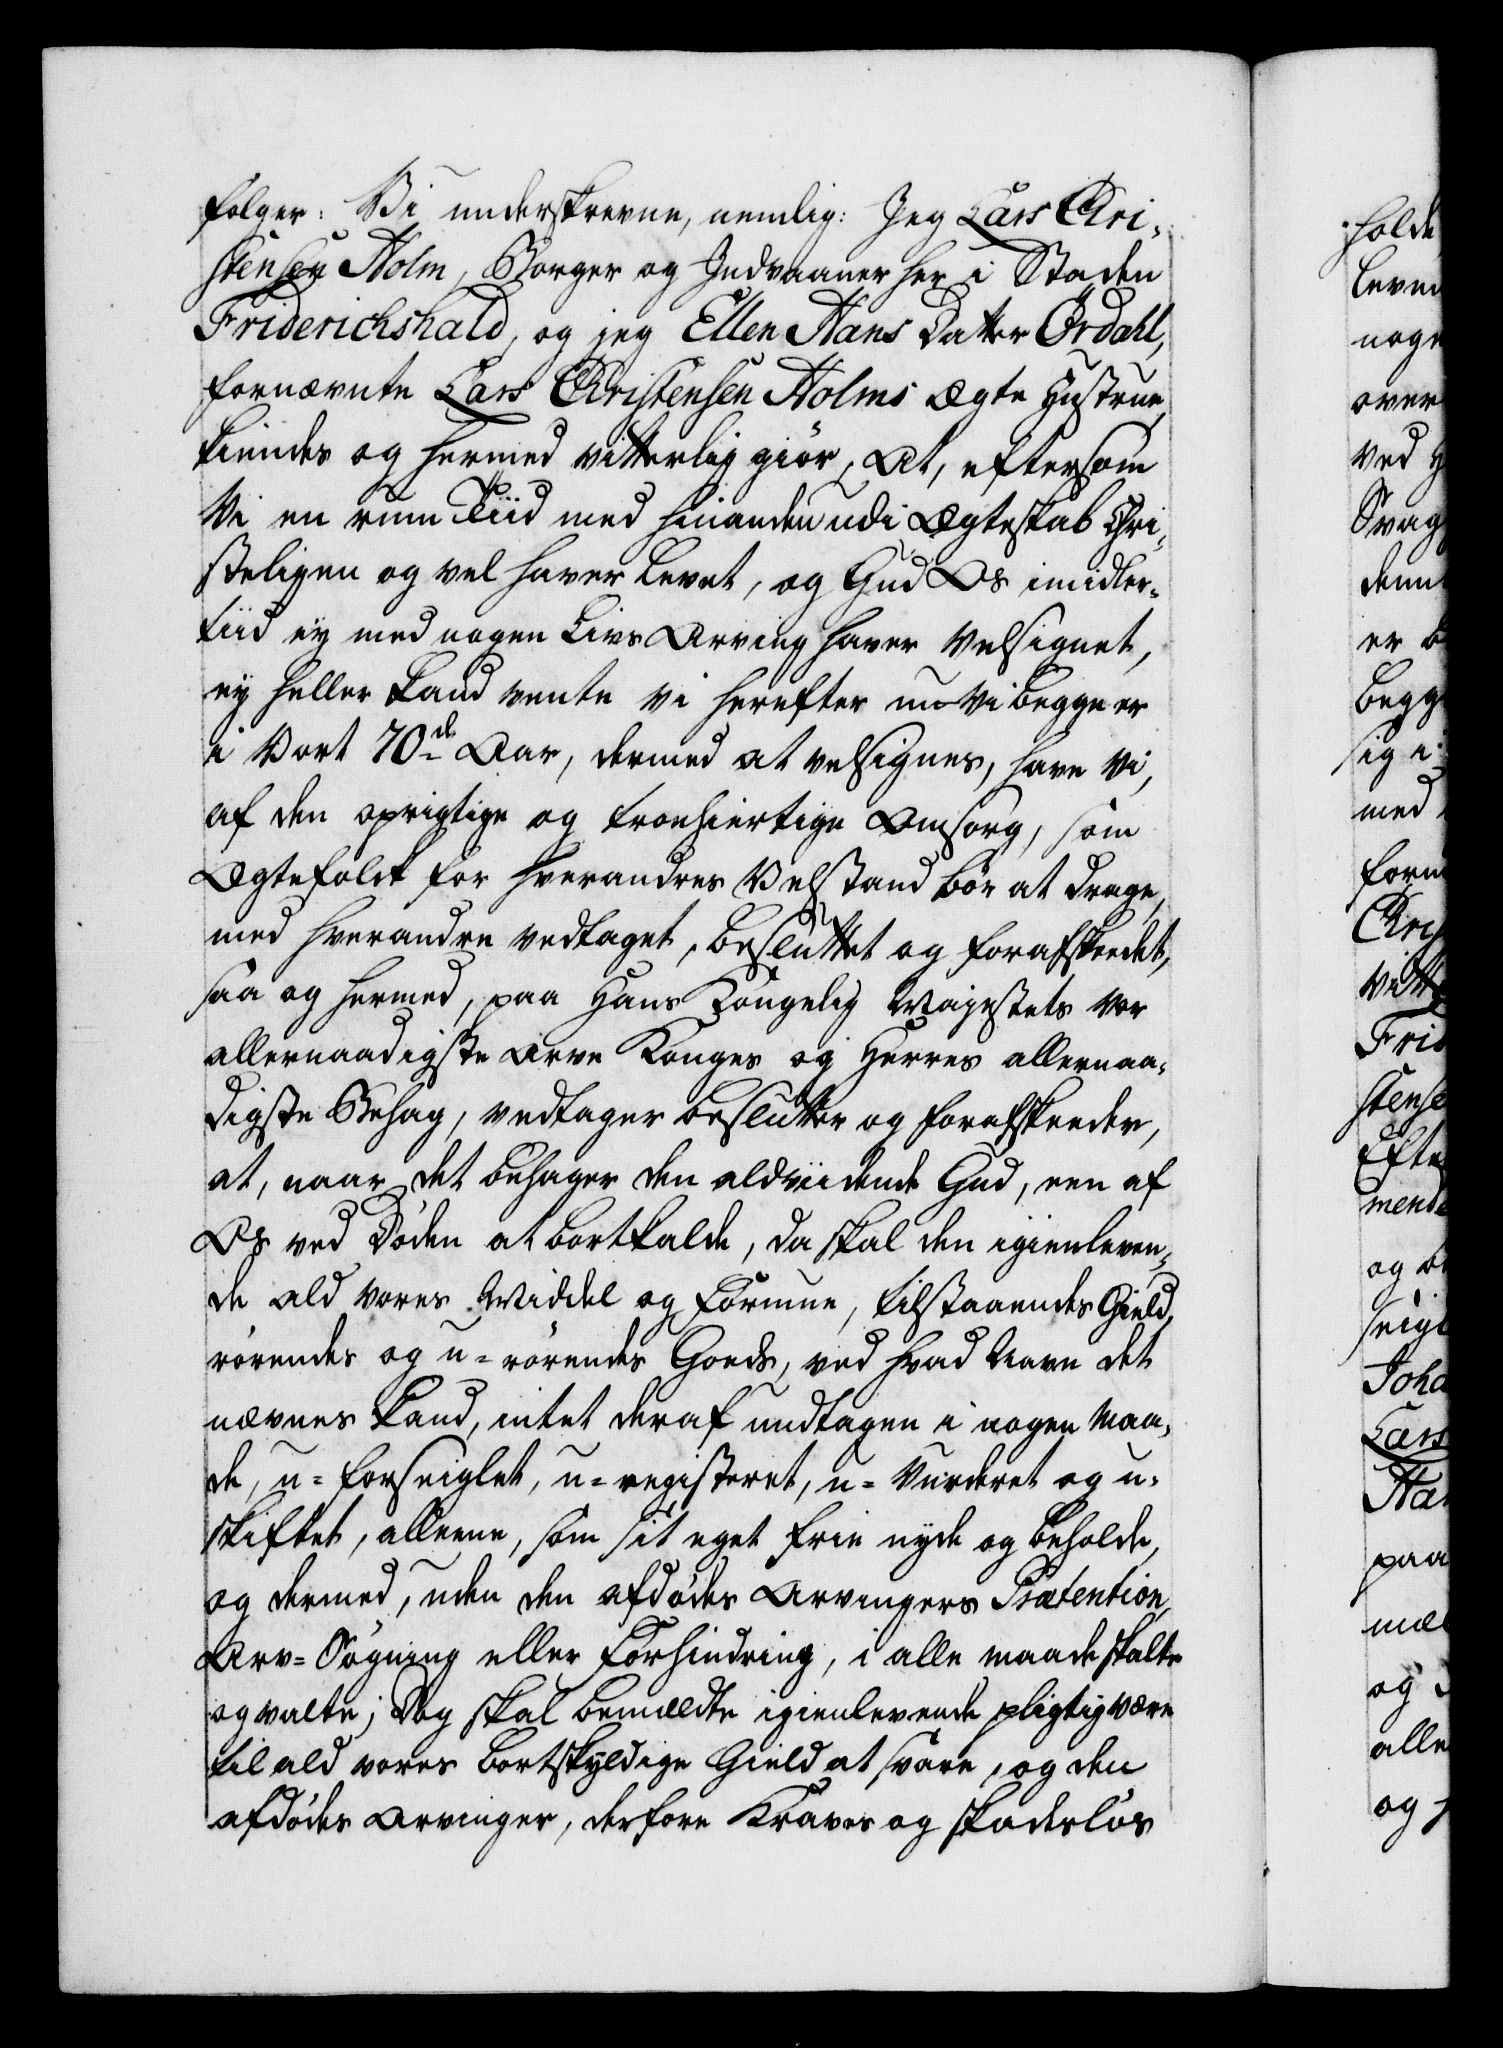 følger: Vi underskrevne, nemlig: Jeg Lars Chri-
stensen Holm, Borger og Indvaaner her i Staden
Friderichshald, og jeg Ellen Hans Datter Ördahl,
fornævnte Lars Christensen Holms Ægte Hustrue,
kiendes og hermed vitterlig giør, At, eftersom
Vi en rum Tiid med hinanden udi Ægteskab Chri-
steligen og vel haver levet, og Gud Os imidler-
tiid ey med nogen Livs Arving haver velsignet,
ey heller kand vente vi herefter nu vi begge er
i Vort 70de Aar, dermed at velsignes, have vi,
af den oprigtige og troehiertige Omsorg, som
Ægtefolck for hverandres Velstand bør at drage,
med hverandre vedtaget, besluttet og forafskeedet,
saa og hermed, paa Hans Kongelig Majestets vor
allernaadigste Arve Konges og Herres allernaa-
digste Behag, vedtager beslutter og forafskeeder,
at, naar det behager den aldviidende Gud, een af
Os ved Døden at bortkalde, da skal den igienleven-
de ald vores Middel og Formue, tilstaaendes Gield,
rørendes og u-rørendes Goeds, ved hvad Navn det
nævnes kand, intet deraf undtagen i nogen Maa-
de, u-forseiglet, u-registeret, u-Vurderet og u-
skiftet, alleene, som sit eget frie nyde og beholde,
og dermed, uden den afdødes Arvingers Prætention,
Arv-Søgning eller Forhindring, i alle maade skalte
og valte; Dog skal bemeldte igienlevende pligtig være
til ald vores bortskyldige Gield at svare, og den
afdødes Arvinger, derfore Kraves og skadesløs
holde
leven
noge
over
ved H
Svag
denn
er b
begg
sig i
med
forn
Chri
Vitt
Frid
stense
Efte
mente
og
seigl
Joha
Lars
Han
paa
og
alle
og